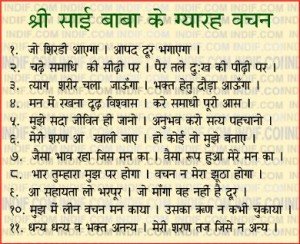 श्री साई बाबा के ग्यारह वचन
१. जो शिरडी आएगा । आपद दूर भगाएगा ।
२. चढ़े समाधि की सीढ़ी पर । पैर तले दुःख की पीढ़ी पर ।
३. त्याग शरीर चला जाऊँगा । भक्त हेतु दौड़ा आऊँगा ।
४. मन में रखना दृढ़ विश्वास । करे समाधी पूरी आस ।
५. मुझे सदा जीवित ही जानो । अनुभव करो सत्य पहचानो ।
६. मेरी शरण आ खाली जाए । हो कोई तो मुझे बताए ।
७. जैसा भाव रहा जिस मन का । वैसा रूप हुआ मेरे मन का ।
८. भार तुम्हारा मुझ पर होगा । वचन न मेरा झूठा होगा ।
९. आ सहायता लो भरपूर । जो माँगा वह नही है दूर ।
१०. मुझ में लीन वचन मन काया । उसका ऋण न कभी चुकाया ।
११. धन्य धन्य व भक्त अनन्य । मेरी शरण तज जिसे न अन्य ।
INDIF.COM